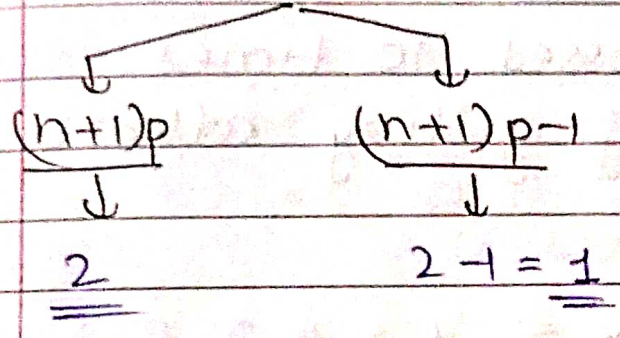 (n+1)p (n+1)p-1
2 2-1 = 1